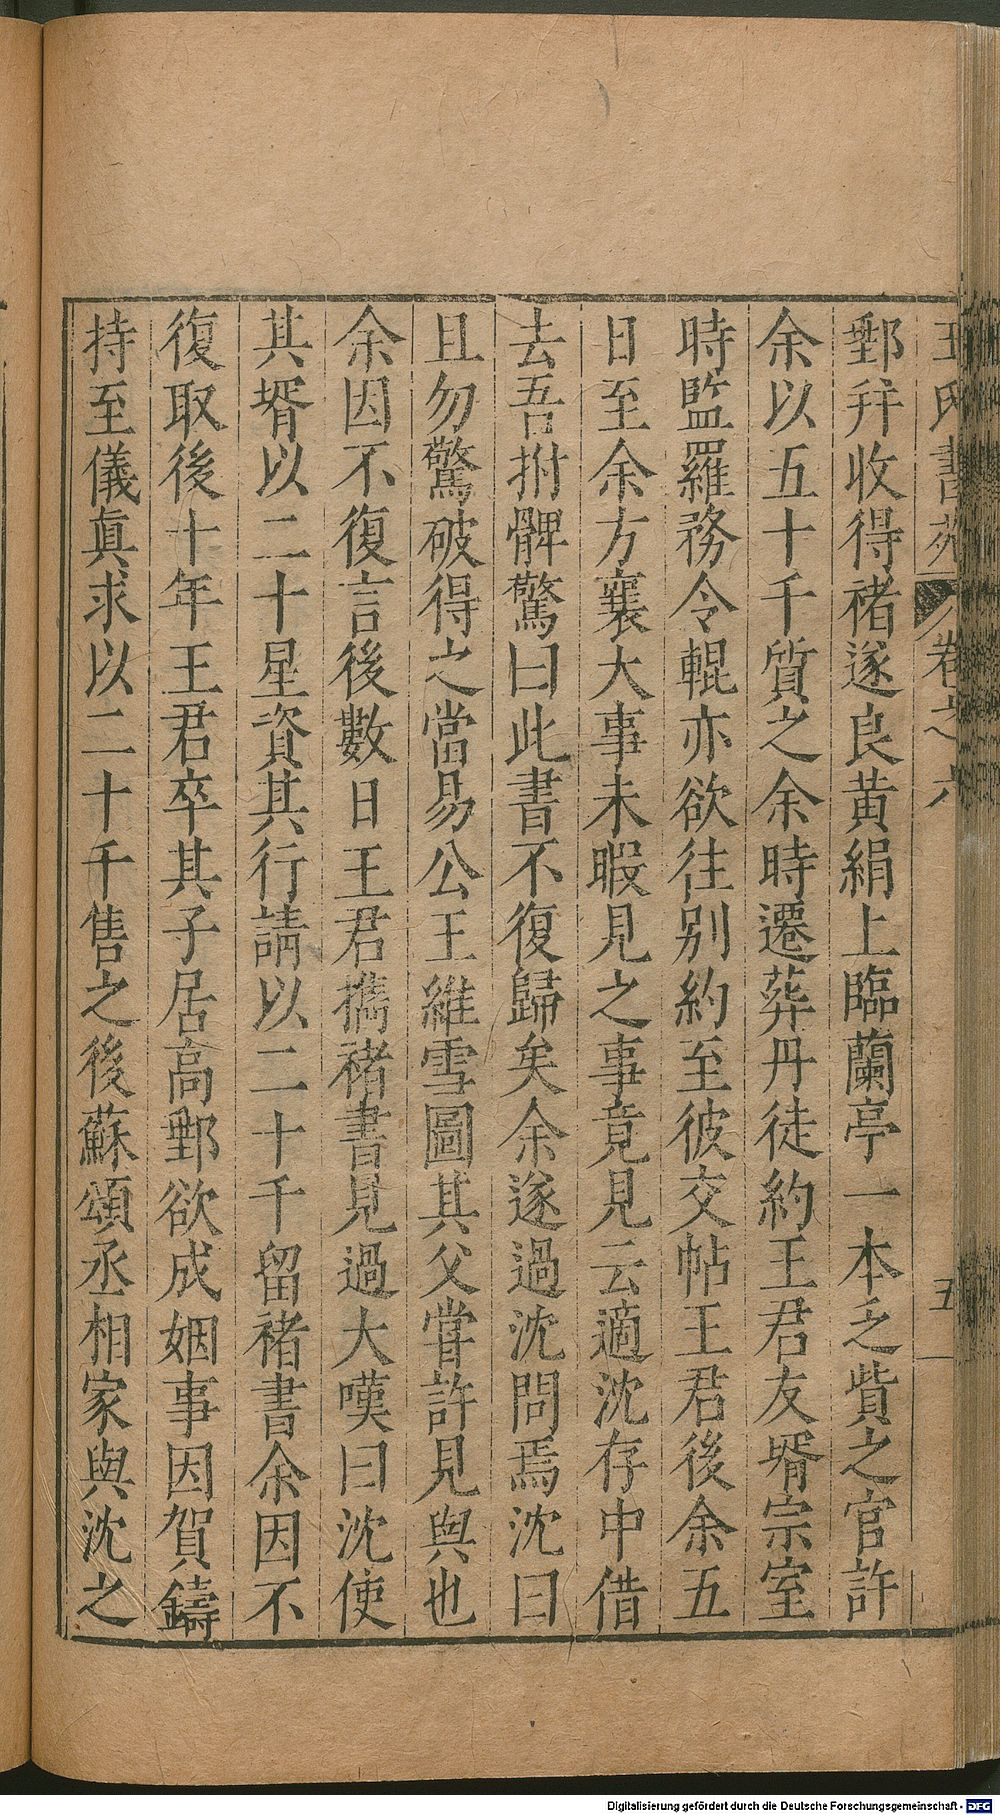 王氏書苑 卷之六 五
郵幷收得褚遂良黃絹上臨蘭亭一本乏貲之官許
余以五十千質之余時遷葬丹徒約王君友壻宗室
時監羅務令輥亦欲往別約至彼交帖王君後余五
日至余方襄大事未暇見之事竟見云適沈存中借
去吾拊髀驚曰此書不復歸矣余遂過沈問焉沈曰
且勿驚破得之當易公王維雪圖其父嘗許見與也
余因不復言後數日王君攜褚書見過大嘆曰沈使
其壻以二十星資其行請以二十千留褚書余因不
復取後十年王君卒其子居高郵欲成姻事因賀鑄
持至儀眞求以二十千售之後蘇頌丞相家與沈之
Digitalisierung gefördert durch die Deutsche Forschungsgemeinschaft - DFG